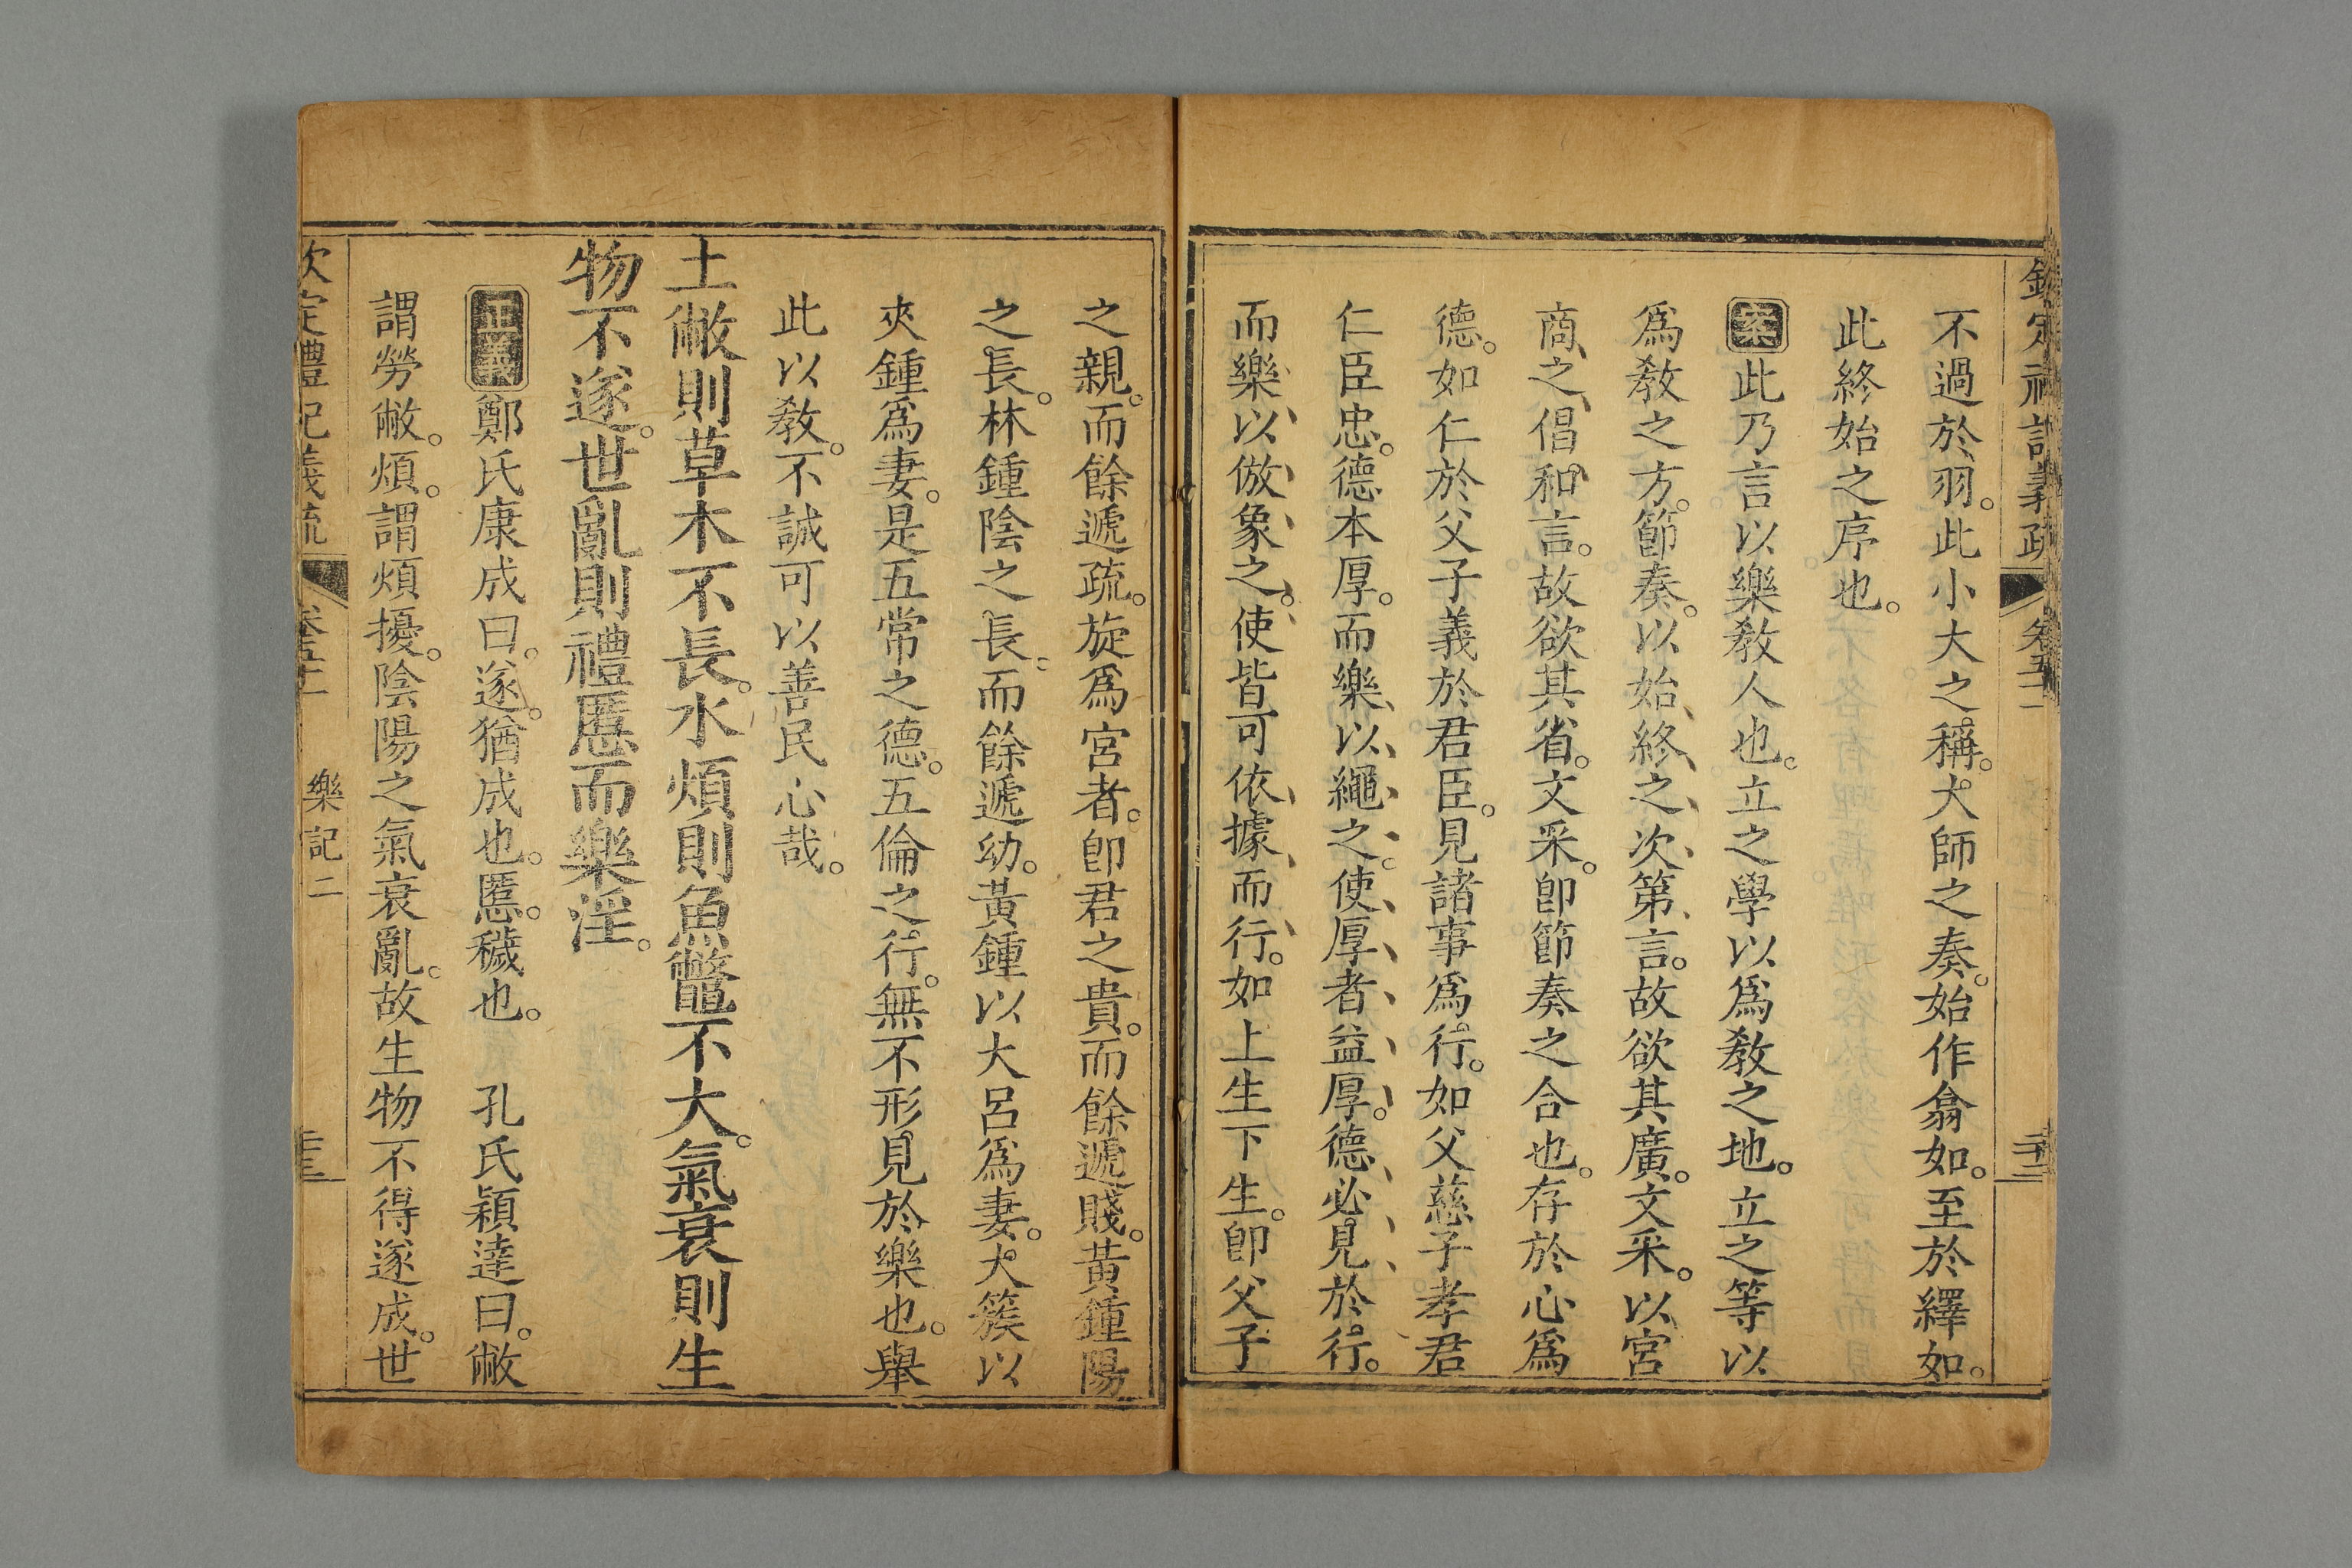 欽定禮記義疏 卷五十一
不過於羽。此小大之稱。大師之奏。始作翕如。至於繹如。
此終始之序也。
案此乃言以樂教人也。立之學以爲教之地。立之等以
爲教之方。節奏。以始、終、之、次、第、言。故欲其廣。文采。以宮
商、之、倡、和、言。故欲其省。文采。卽節奏之合也。存於心爲
德。如仁於父子義於君臣。見諸事爲行。如父慈子孝君
仁臣忠。德本厚。而樂、以、繩、之。使、厚、者、益、厚。德、必、見、於、行。
而樂、以、倣、象、之。使皆可依、據、而、行。如上生下生。卽父子
之親。而餘遞疏。旋爲宮者。卽君之貴。而餘遞賤。黃鍾陽
之長。林鍾陰之長。而餘遞幼。黃鍾以大呂爲妻。大簇以
夾鍾爲妻。是五常之德。五倫之行。無不形見於樂也。舉
此以教。不誠可以善民心哉。
土敝則草木不長。水煩則魚鼈不大。氣衰則生
物不遂。世亂則禮慝而樂淫。
正義鄭氏康成曰。遂。猶成也。慝。穢也。 孔氏穎達曰。敝
謂勞敝。煩。謂煩擾。陰陽之氣衰亂。故生物不得遂成。世
欽定禮記義疏 卷五十一 樂記二